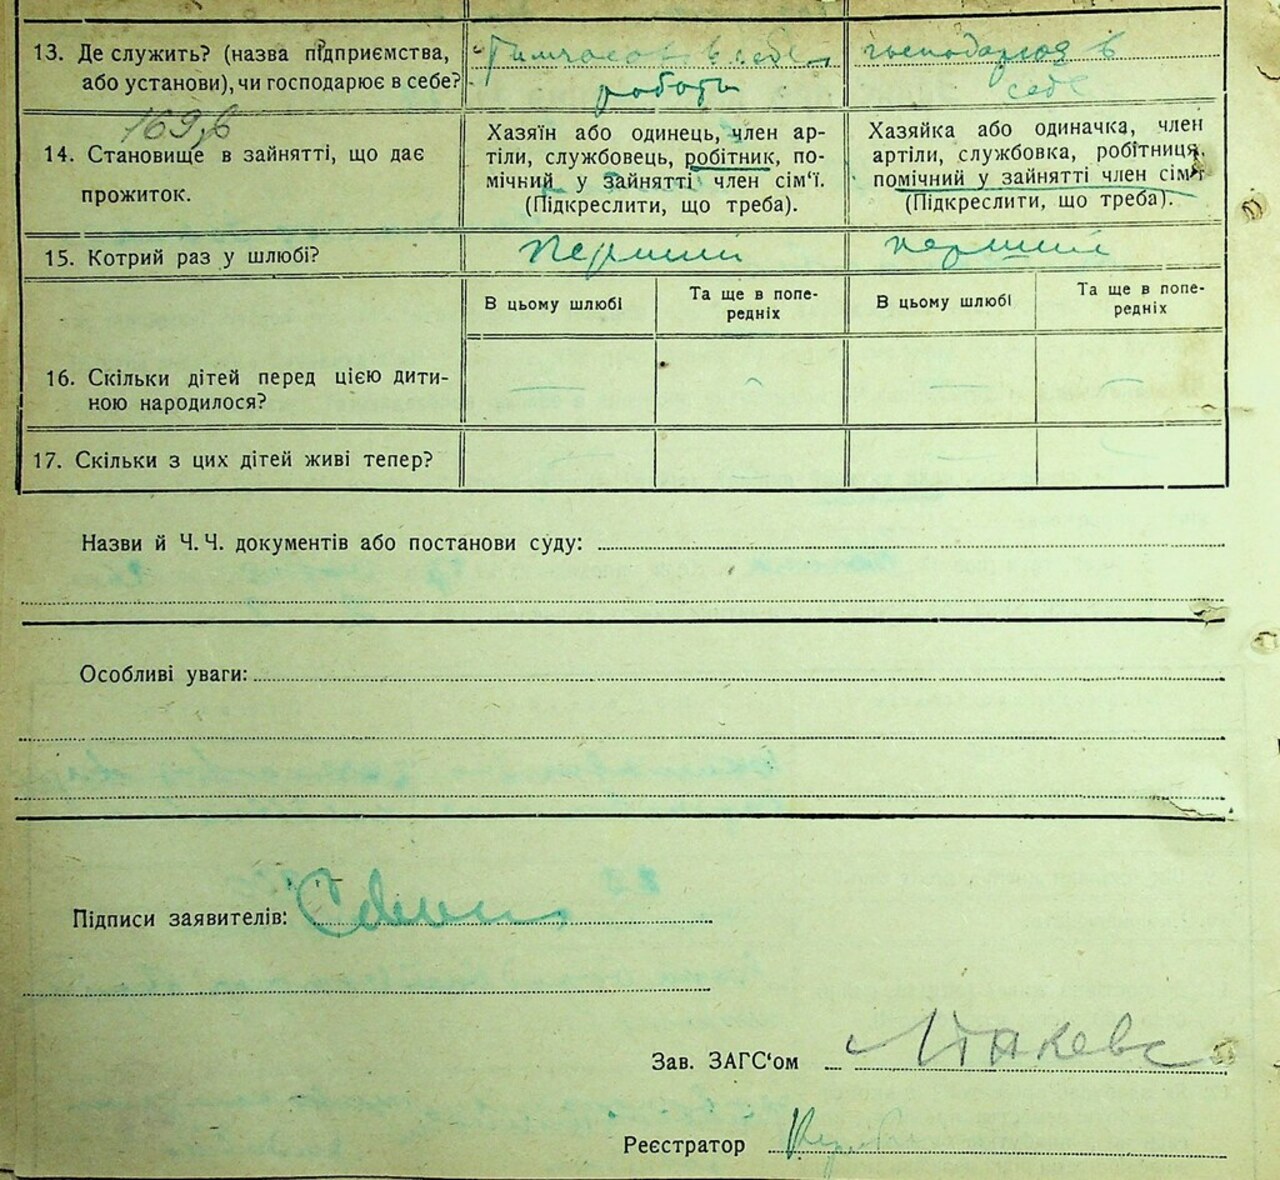 13. Де служить? (назва підприємства,
або установи), чи господарює в себе?
Тимчасов в себе
роботи
господарює в
себе
169,в
14. Становище в зайнятті, що дає
прожиток.
Хазяїн або одинець, член ар-
тіли, службовець, робітник, по-
мічний у зайнятті член сім‘ї.
(Підкреслити, що треба).
Хазяйка або одиначка, член
артіли, службовка, робітниця,
помічний у зайнятті член сім‘ї
(Підкреслити, що треба).
15. Котрий раз у шлюбі?
перший
перший
В цьому шлюбі
Та ще в попе-
редніх
В цьому шлюбі
Та ще в попе-
редніх
16. Скільки дітей перед цією дити-
ною народилося?
— — — —
17. Скільки з цих дітей живі тепер?
— — — —
Назви й Ч. Ч. документів або постанови суду:
Особливі уваги:
Підписи заявителів:
Зав. ЗАГС‘ом
Реєстратор